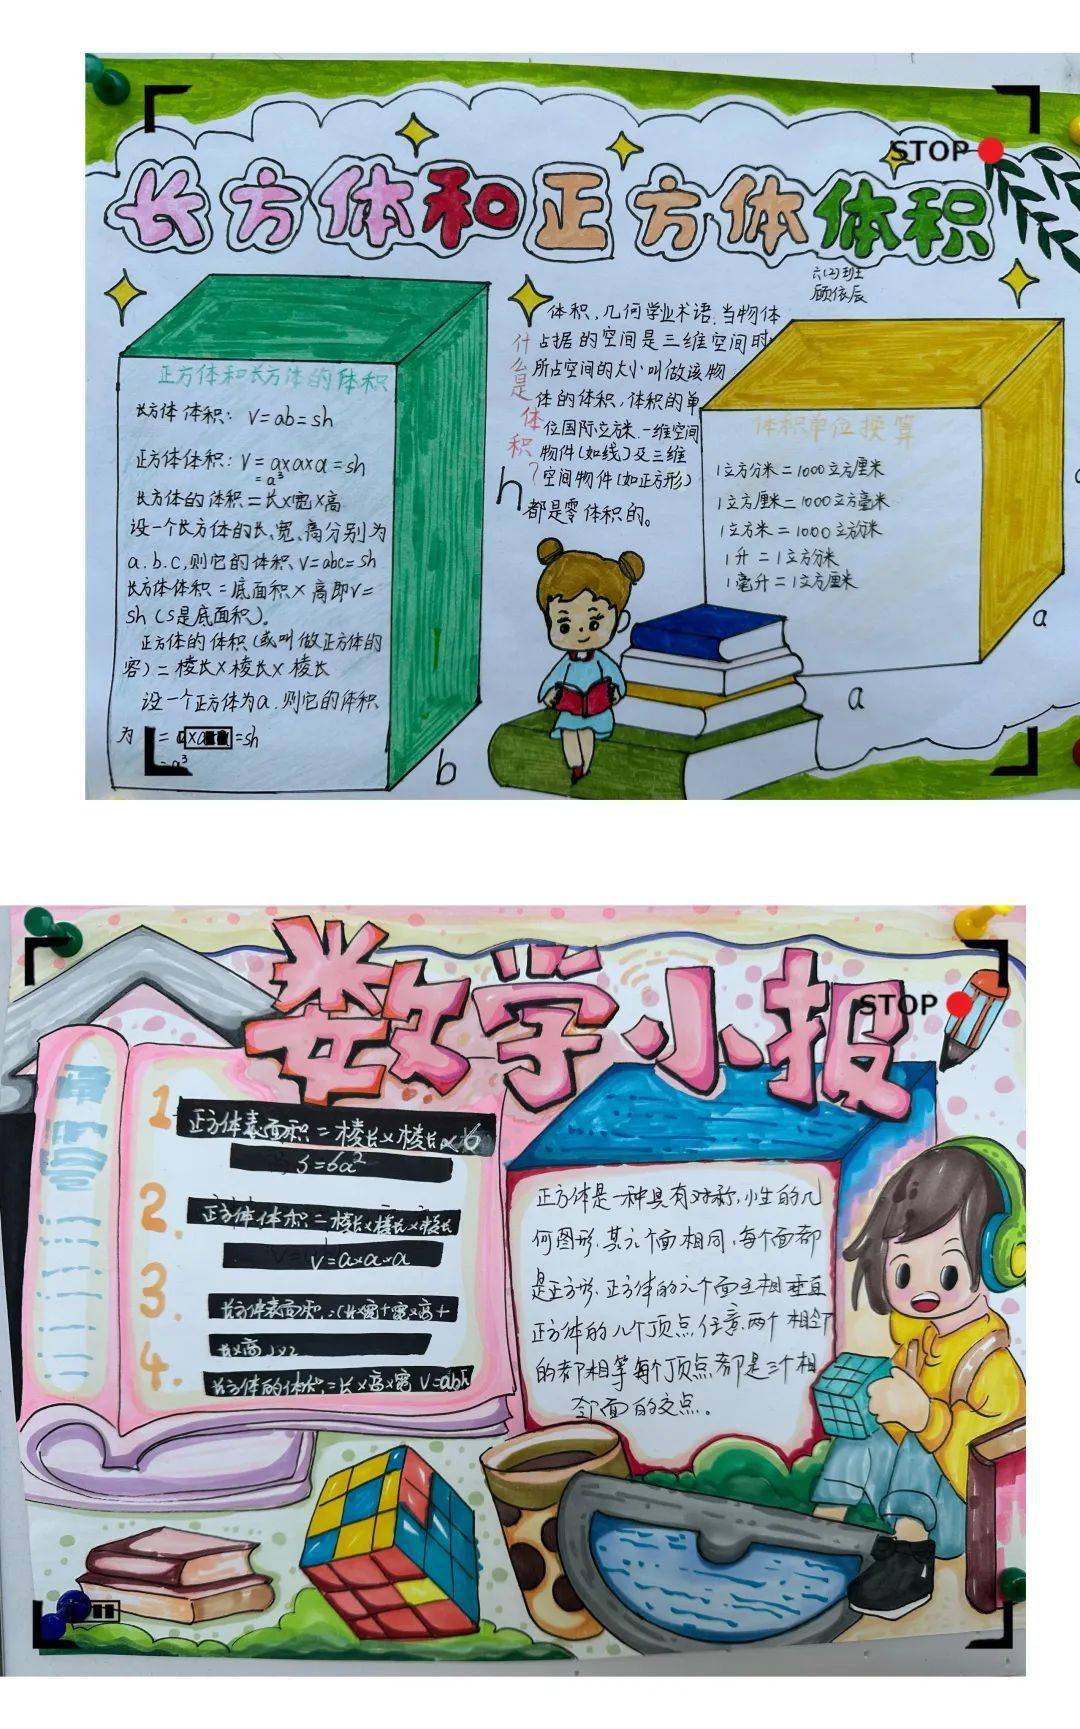 STOP
长方体和正方体体积
六(2)班
顾依辰
正方体和长方体的体积
长方体体积： V=ab=sh
正方体体积：V=a×a×a=sh
=a³
长方体的体积=长×宽×高
设一个长方体的长、宽、高分别为
a.b.c,则它的体积V=abc=sh
长方体体积=底面积×高即V=
sh(S是底面积)。
正方体的体积(或叫做正方体的
容)=棱长×棱长×棱长
设一个正方体为a.则它的体积
为
=sh
=a³
b
什么是体积?
体积，几何学业术语.当物体
占据的空间是三维空间时
所占空间的大小叫做该物
体的体积,体积的单
位国际立方米.一维空间
物件(如线)及三维
空间物件(如正方形)
都是零体积的。
h
体积单位换算
1立方分米=1000立方厘米
1立方厘米=1000立方毫米
1立方米=1000立方分米
1升=1立方分米
1毫升=1立方厘米
a
a
STOP
数学小报
1
正方体表面积=棱长×棱长×6
S=6a²
2.
正方体体积=棱长×棱长×棱长
V=a×a×a
3.
长方体表面积=(长×宽+宽×高+
长×高)×2
4.
长方体的体积=长×高×宽 V=abh
正方体是一种具有对称,性的几
何图形.其六个面相同,每个面都
是正方形.正方体的六个面互相垂直
正方体的八个顶点任意两个相邻
的都相等每个顶点都是三个相
邻面的交点。